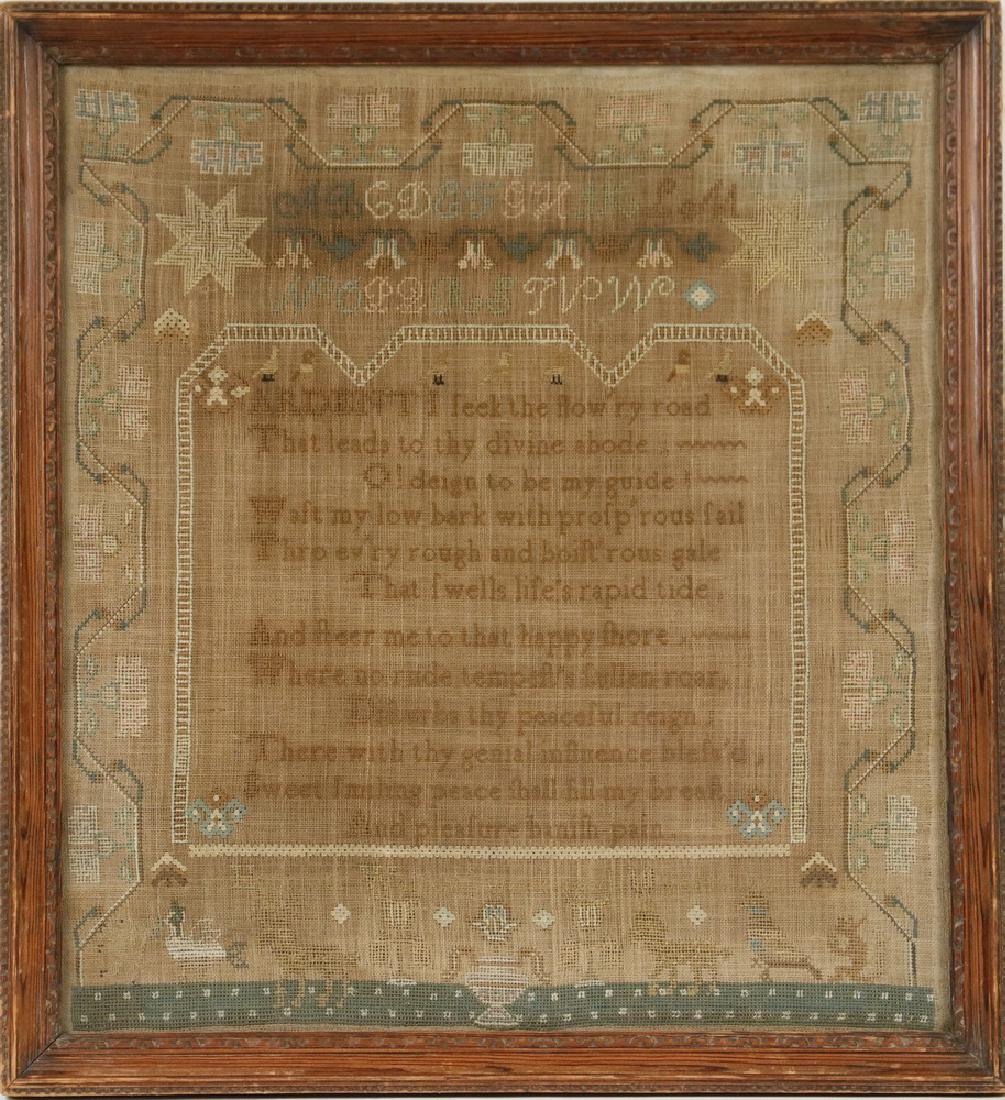 A B C D E F G H I K L M
N O P Q R S T V W
ARDENT I ſeek the flow'ry road
That leads to thy divine abode ;
O! deign to be my guide !
Waft my low bark with proſp'rous ſail
Thro ev'ry rough and boiſt'rous gale
That ſwells life's rapid tide ,
And ſteer me to that happy ſhore .
Where no rude tempeſt's ſullen roar,
Diſturbs thy peaceful reign ;
There with thy genial influence bleſs'd ,
Sweet ſmiling peace ſhall fill my breaſt
And pleaſure baniſh pain